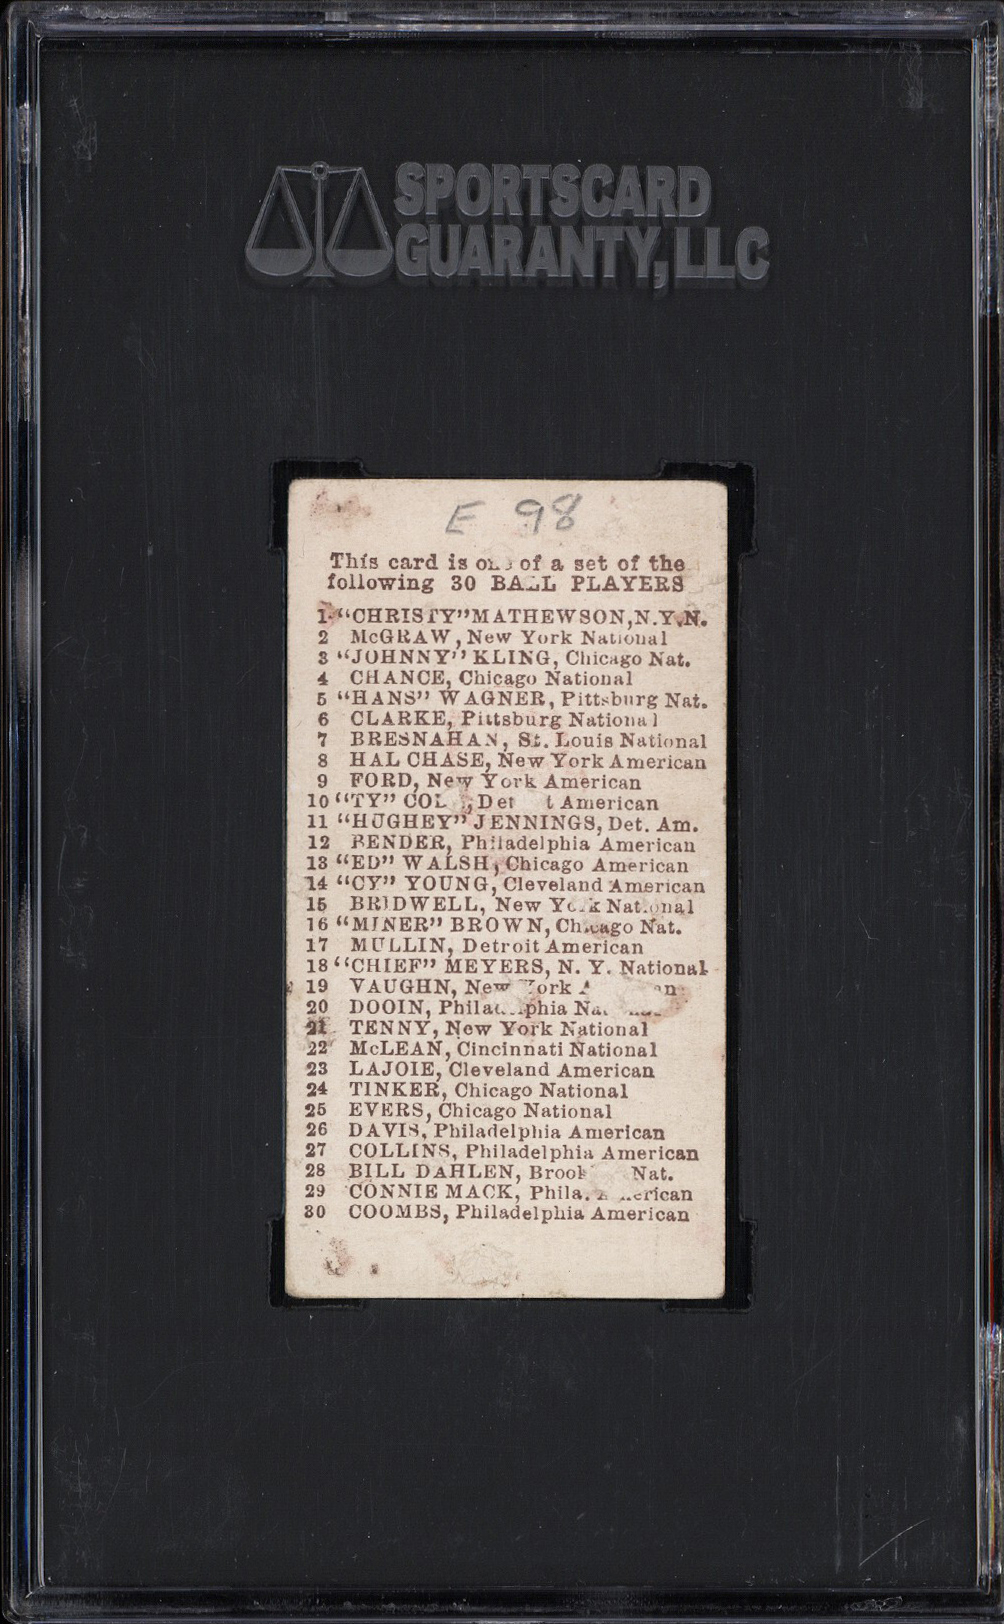 SPORTSCARD
GUARANTY, LLC
E 98
This card is of a set of the
following 30 PLAYERS
1 "CHRISTY" MATHEWSON, N.Y. N.
2 McGRAW, New York National
3 "JOHNNY" KLING, Chicago Nat.
4 CHANCE, Chicago National
5 "HANS" WAGNER, Pittsburg Nat.
6 CLARKE, Pittsburg National
7 BRESNAHAN, St. Louis National
8 HAL CHASE, New York American
9 FORD, New York American
10 "TY" American
11 "HUGHEY" JENNINGS, Det. Am.
12 BENDER, Philadelphia American
13 "ED" WALSH, Chicago American
14 "CY" YOUNG, Cleveland American
15 BRIDWELL, New National
16 "MINER" BROWN, Chicago Nat.
17 MULLIN, Detroit American
18 "CHIEF" MEYERS, N. Y. National
19 VAUGHN, New
20 DOOIN,
21 TENNY, New York National
22 McLEAN, Cincinnati National
23 LAJOIE, Cleveland American
24 TINKER, Chicago National
25 EVERS, Chicago National
26 DAVIS, Philadelphia American
27 COLLINS, Philadelphia American
28 BILL DAHLEN, Nat.
29 CONNIE MACK, Phila.
30 COOMBS, Philadelphia American